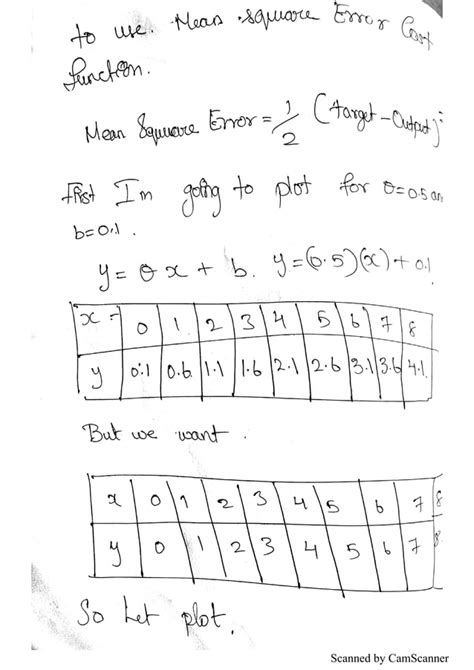 to use. Mean square Error Cost
function.
Mean Square Error = 1/2 (target - Output)²
First Im going to plot for θ=0.5 an
b=0.1.
y = θ x + b. y=(0.5)(x)+0.1
x = 0 1 2 3 4 5 6 7 8
y 0.1 0.6 1.1 1.6 2.1 2.6 3.1 3.6 4.1
But we want.
x 0 1 2 3 4 5 6 7 8
y 0 1 2 3 4 5 6 7 8
So Let plot.
Scanned by CamScanner